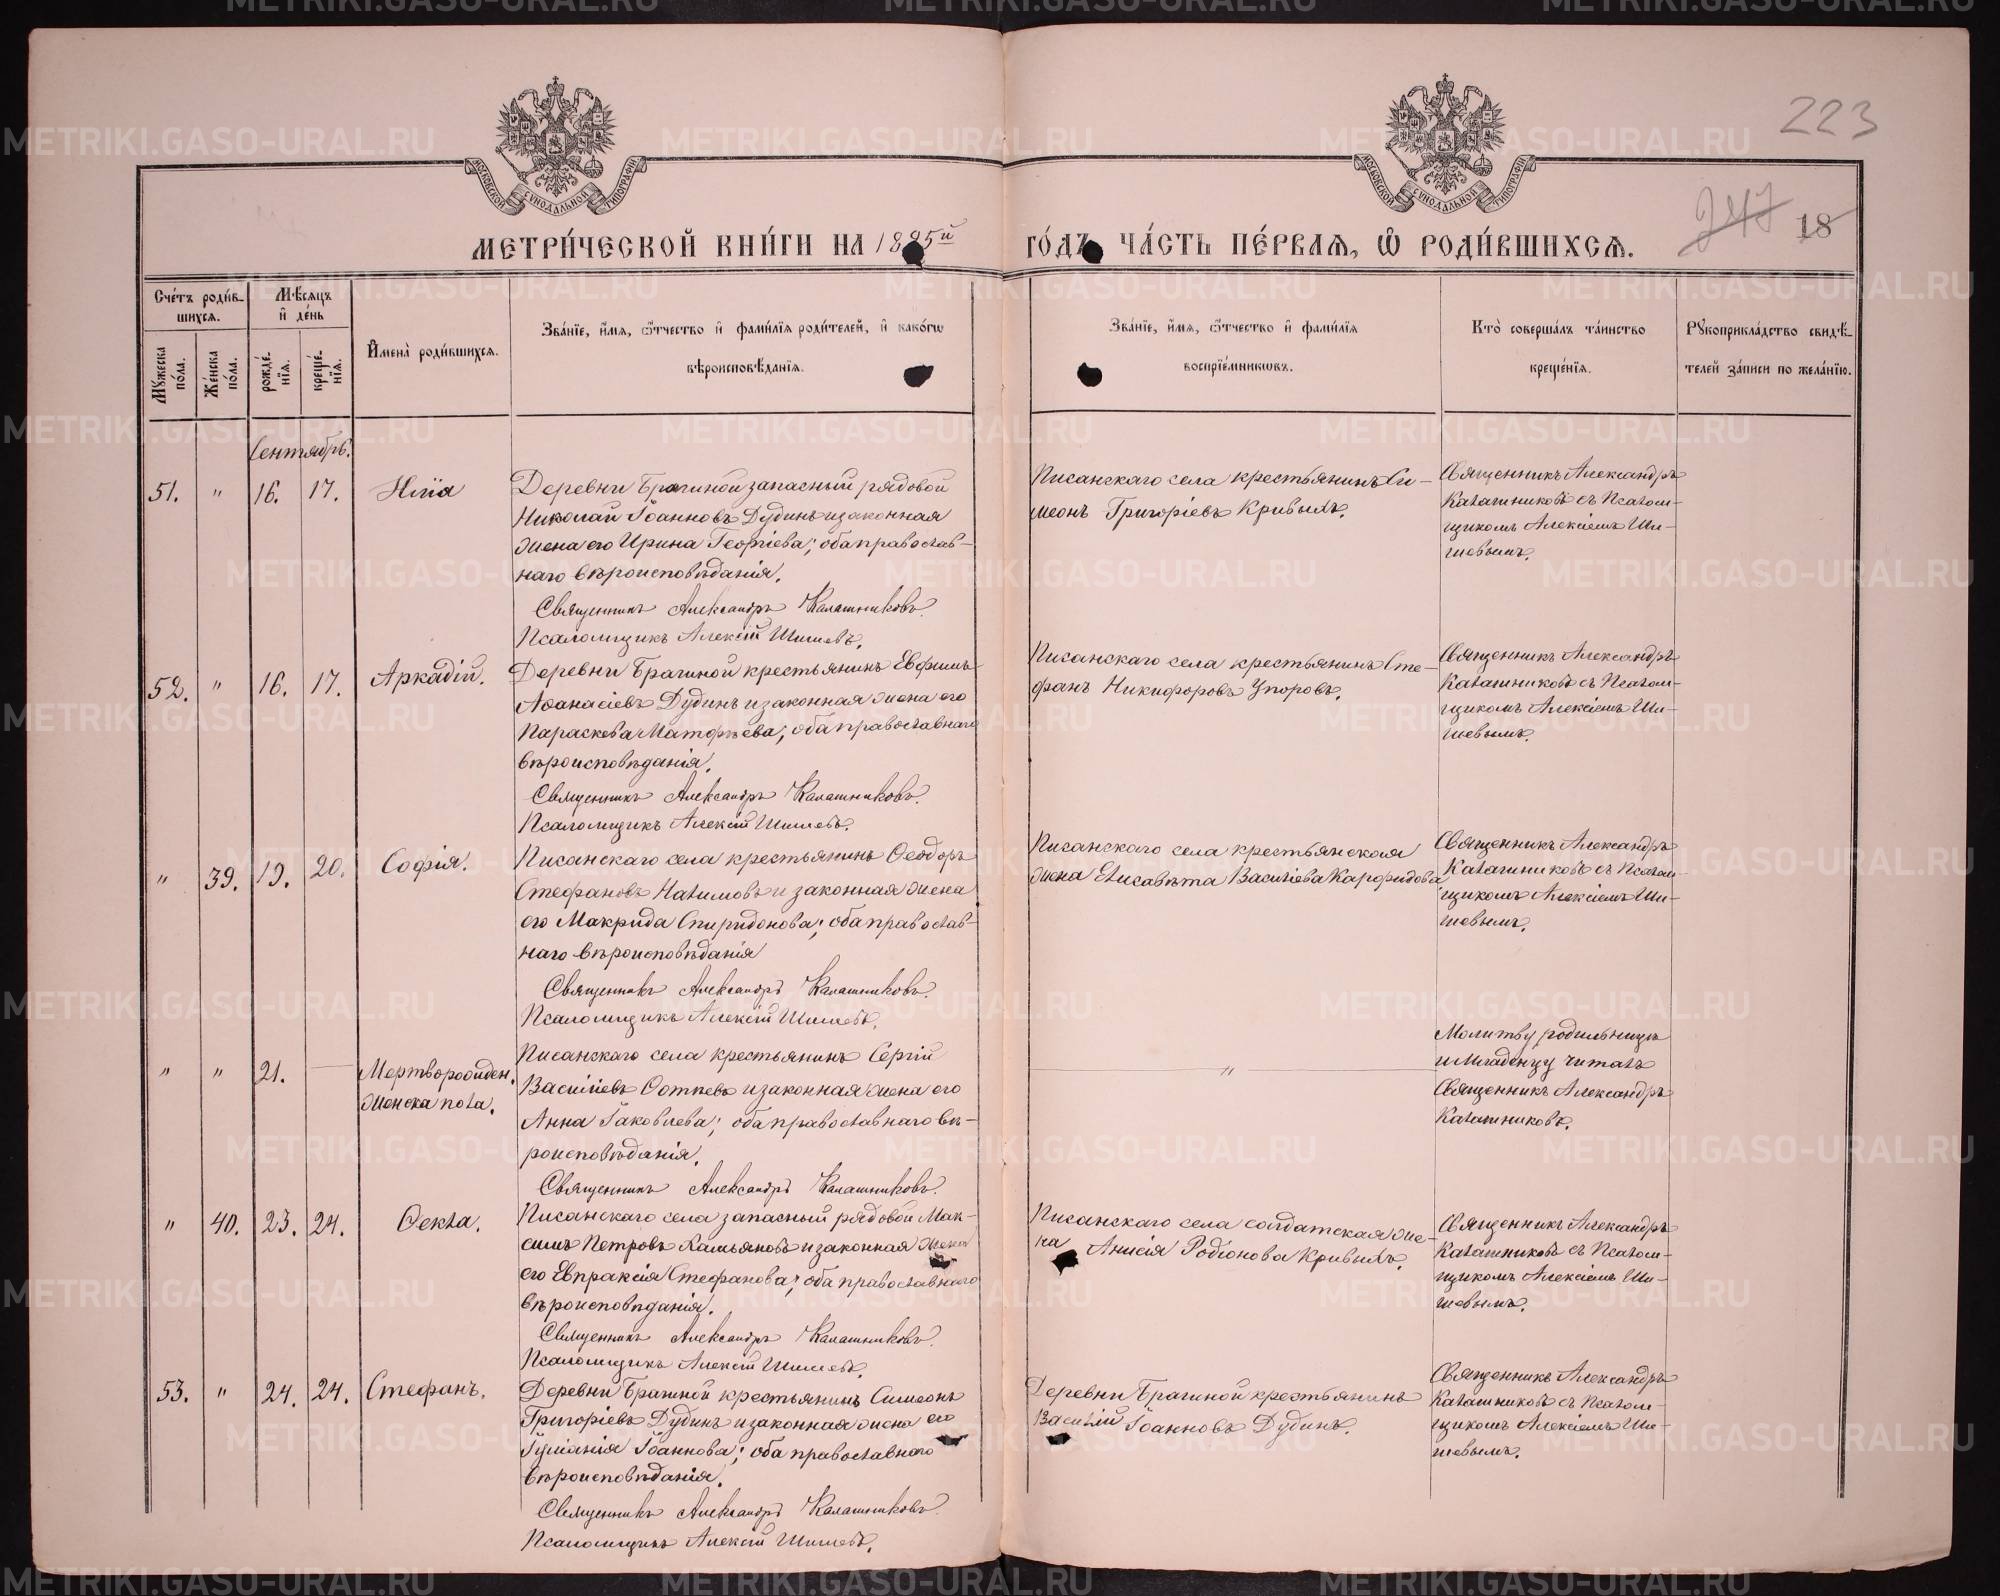 МОСКОВСКОЙ СУНОДАЛЬНОЙ ТИПОГРАФІИ
МОСКОВСКОЙ СУНОДАЛЬНОЙ ТИПОГРАФІИ
223
247
18
МЕТРИ́ЧЕСКОЙ КНИ́ГИ НА 1885й ГО́ДЪ, ЧА́СТЬ ПЕ́РВАѦ, Ѡ҆ РОДИ́ВШИХСѦ.
Сче́тъ роди́в-
шихсѧ.
Мѣ́сѧцъ
и҆ де́нь
Мꙋ́жеска по́ла.
Же́нска по́ла.
рожде́-
нїѧ.
креще́-
нїѧ.
И҆мена̀ роди́вшихсѧ.
Зва́нїе, и҆́мѧ, ѻ҆́тчество и҆ фами́лїѧ роди́телей, и҆ како́гѡ
вѣроисповѣ́данїѧ.
Зва́нїе, и҆́мѧ, ѻ҆́тчество и҆ фами́лїѧ
воспрїе́мникѡвъ.
Кто̀ соверша́лъ та́инство
креще́нїѧ.
Рꙋкоприкла́дство свидѣ́-
телей за́писи по жела́нїю.
Сентябрь.
51. " 16. 17.
Деревни Брагиной запасный рядовой
Николай Іоанновъ Дудинъ и законная
жена его Ирина Георгіева; оба православ-
наго вѣроисповѣданія.
Священникъ Александръ Калашниковъ.
Псаломщикъ Алексій Шишевъ.
Писанскаго села крестьянинъ Си-
меонъ Григоріевъ Кривыхъ.
Священникъ Александръ
Калашниковъ съ Псалом-
щикомъ Алексіемъ Ши-
шевымъ.
52. " 16. 17. Аркадій.
Деревни Брагиной крестьянинъ Евфимъ
Аѳанасіевъ Дудинъ и законная жена его
Параскева Матфѣева; оба православнаго
вѣроисповѣданія.
Священникъ Александръ Калашниковъ.
Псаломщикъ Алексій Шишевъ.
Писанскаго села крестьянинъ Сте-
фанъ Никифоровъ Упоровъ.
Священникъ Александръ
Калашниковъ съ Псалом-
щикомъ Алексіемъ Ши-
шевымъ.
" 39. 19. 20. Софія.
Писанскаго села крестьянинъ Ѳеодоръ
Стефановъ Налимовъ и законная жена
его Макрида Спиридонова; оба православ-
наго вѣроисповѣданія
Священникъ Александръ Калашниковъ.
Псаломщикъ Алексій Шишевъ.
Писанскаго села крестьянская
жена Елисавѣта Василіева
Священникъ Александръ
Калашниковъ съ Псалом-
щикомъ Алексіемъ Ши-
шевымъ.
" " 21. — Мертворожден.
женска пола.
Писанскаго села крестьянинъ Сергій
Василіевъ и законная жена его
Анна Іаковлева; оба православнаго вѣ-
роисповѣданія.
Священникъ Александръ Калашниковъ.
"
Молитву родильницѣ
и младенцу читалъ
Священникъ Александръ
Калашниковъ.
" 40. 23. 24. Ѳекла.
Писанскаго села запасный рядовой Мак-
симъ Петровъ и законная жена
его Евпраксія Стефанова; оба православнаго
вѣроисповѣданія.
Священникъ Александръ Калашниковъ.
Псаломщикъ Алексій Шишевъ.
Писанскаго села солдатская же-
на Анисія Родіонова Кривыхъ.
Священникъ Александръ
Калашниковъ съ Псалом-
щикомъ Алексіемъ Ши-
шевымъ.
53. " 24. 24. Стефанъ.
Деревни Брагиной крестьянинъ Симеонъ
Григоріевъ Дудинъ и законная жена его
Іуліанія Іоаннова; оба православнаго
вѣроисповѣданія.
Священникъ Александръ Калашниковъ.
Псаломщикъ Алексій Шишевъ.
Деревни Брагиной крестьянинъ
Василій Іоанновъ Дудинъ.
Священникъ Александръ
Калашниковъ съ Псалом-
щикомъ Алексіемъ Ши-
шевымъ.
METRIKI.GASO-URAL.RU